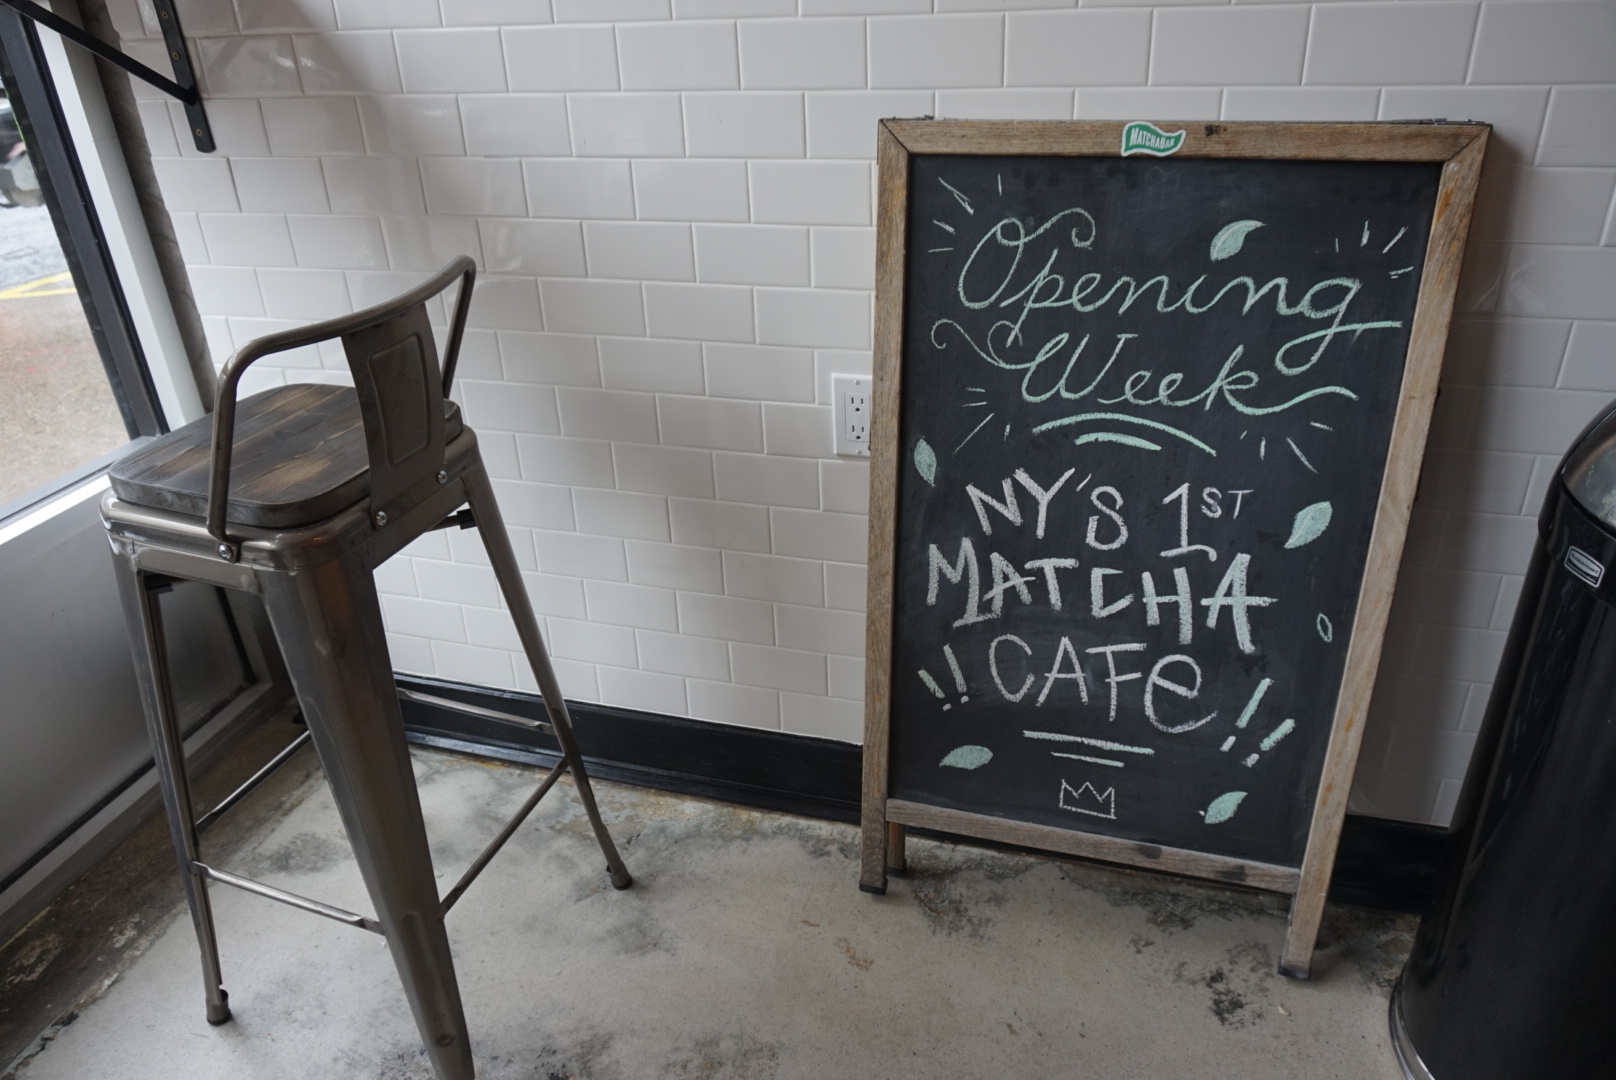 MATCHABAR
Opening
Week
NY'S 1ST
MATCHA
CAFE
!! !!